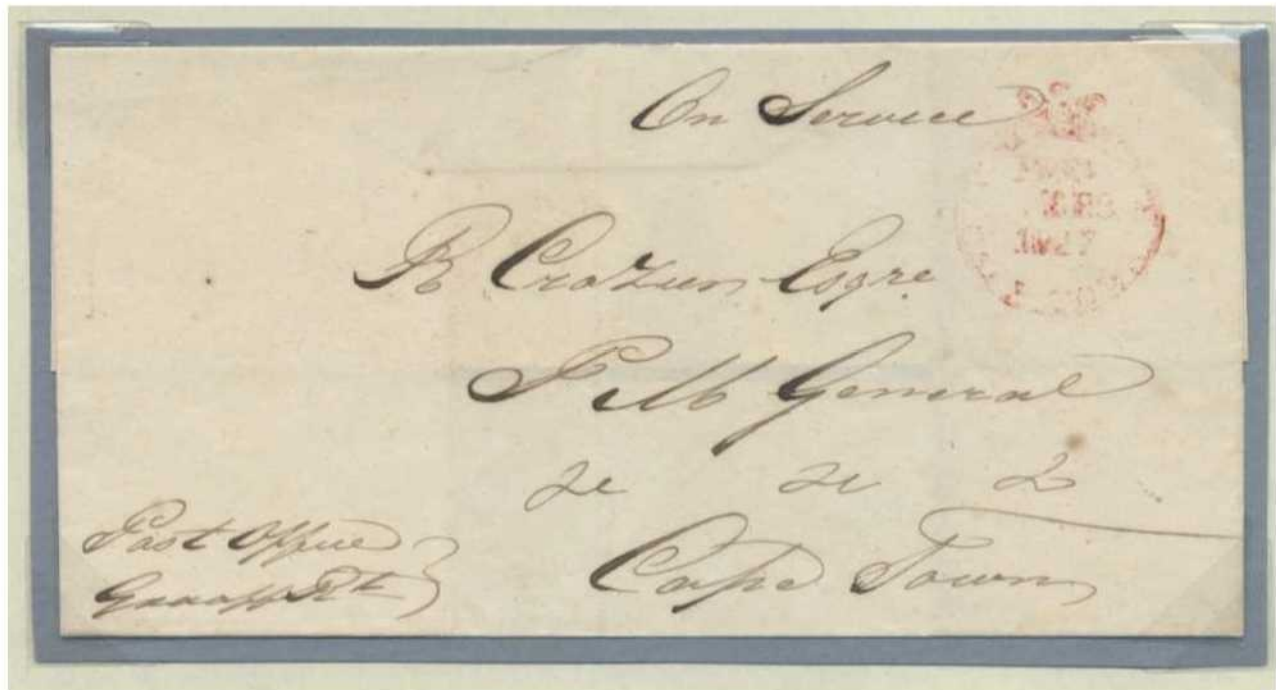 On Service
R Crozier Esqre
P M General
&c &c &c
Cape Town
Post Office
Graaff Rt
1827